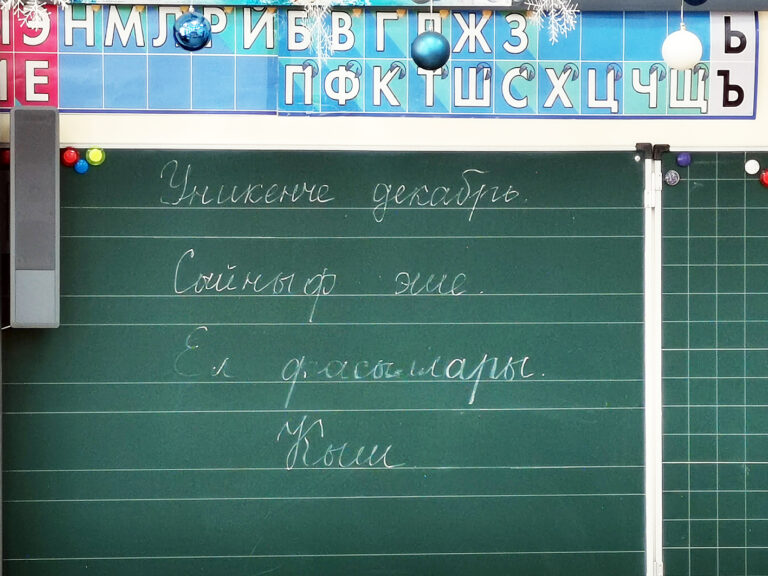 Э Н М Л Р Й Б В Г Д Ж З Ь
Е П Ф К Т Ш С Х Ц Ч Щ Ъ
Уникенче декабрь.
Сыйныф эше.
Ел фасыллары.
Кыш